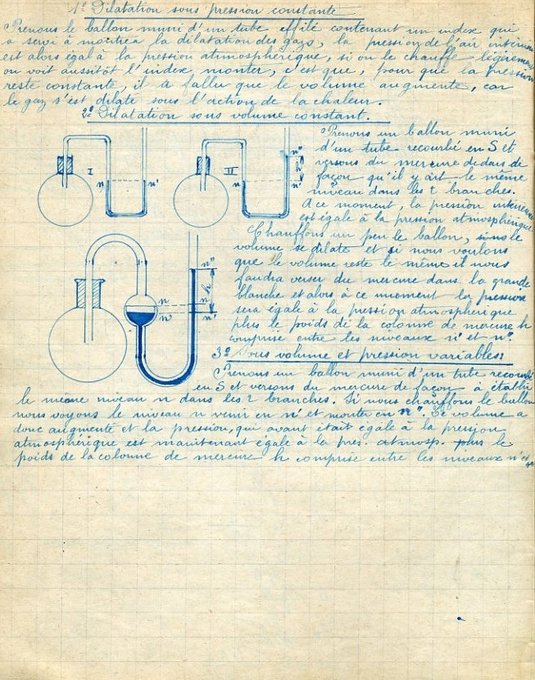 1º Dilatation sous pression constante
Prenons le ballon muni d'un tube effilé contenant un index qui
a servi à montrer la dilatation des gazs, la pression de l'air intérieur
est alors égal à la pression atmosphérique, si on le chauffe légèrement
on voit aussitôt l'index, monter, c'est que, pour que la pression
reste constante, il a fallu que le volume augmente, car
le gaz s'est dilaté sous l'action de la chaleur.
2º Dilatation sous volume constant.
Prenons un ballon muni
d'un tube recourbé en S et
versons du mercure dedans de
façon qu'il y ait le même
niveau dans les 2 branches.
A ce moment, la pression intérieure
est égale à la pression atmosphérique
I
n
n'
II
n
n'
n"
h
Chauffons un peu le ballon, le
volume se dilate et si nous voulons
que le volume reste le même il nous
faudra verser du mercure dans la grande
blanche et alors à ce moment la pression
sera égale à la pression atmosphérique
plus le poids de la colonne de mercure h
comprise entre les niveaux n' et n"
n"
h
n
n'
n
n'
3º Sous volume et pression variables
Prenons un ballon muni d'un tube recourbé
en S et versons du mercure de façon à établir
le même niveau n dans les 2 branches. Si nous chauffons le ballon
nous voyons le niveau n venir en n' et monter en n". Le volume a
donc augmenté et la pression, qui avant était égale à la pression
atmosphérique est maintenant égale à la pres. atmosp. plus le
poids de la colonne de mercure h comprise entre les niveaux n' et n"